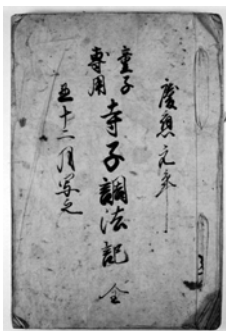 慶應元年
童子
專用
寺子調法記 全
丑十二月写之